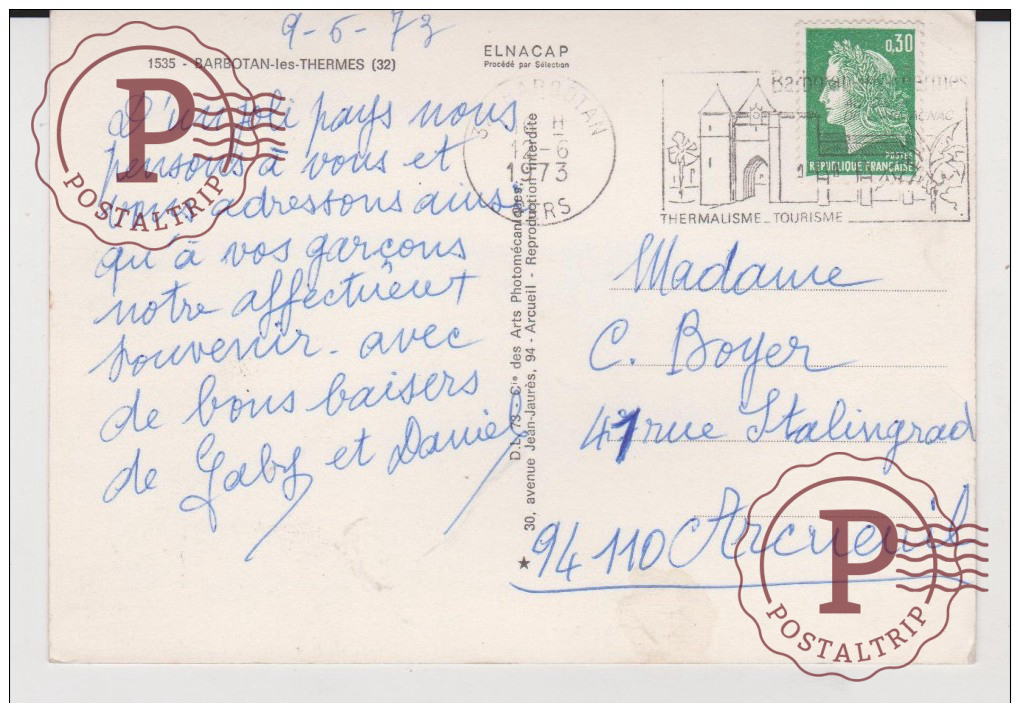 9-6-73
1535 - BARBOTAN-les-THERMES (32)
ELNACAP
Procédé par Sélection
D'un joli pays nous
pensons à vous et
vous adressons ainsi
qu'à vos garçons
notre affectueux
souvenir. avec
de bons baisers
de Gaby et Daniel
D.L. 73 - Cie des Arts Photomécaniques,
30, avenue Jean-Jaurès, 94 - Arcueil - Reproduction interdite
BARBOTAN
H
12-6
1973
GERS
Barbotan les Thermes
THERMALISME_TOURISME
0,30
POSTES
REPUBLIQUE FRANÇAISE
Madame
C. Boyer
41 rue Stalingrad
94110 Arcueil
P
POSTALTRIP
P
POSTALTRIP